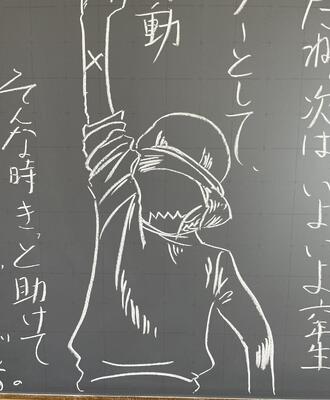 たね次はいよいよ六年生
ーとして、
動
そんな時きっと助けて